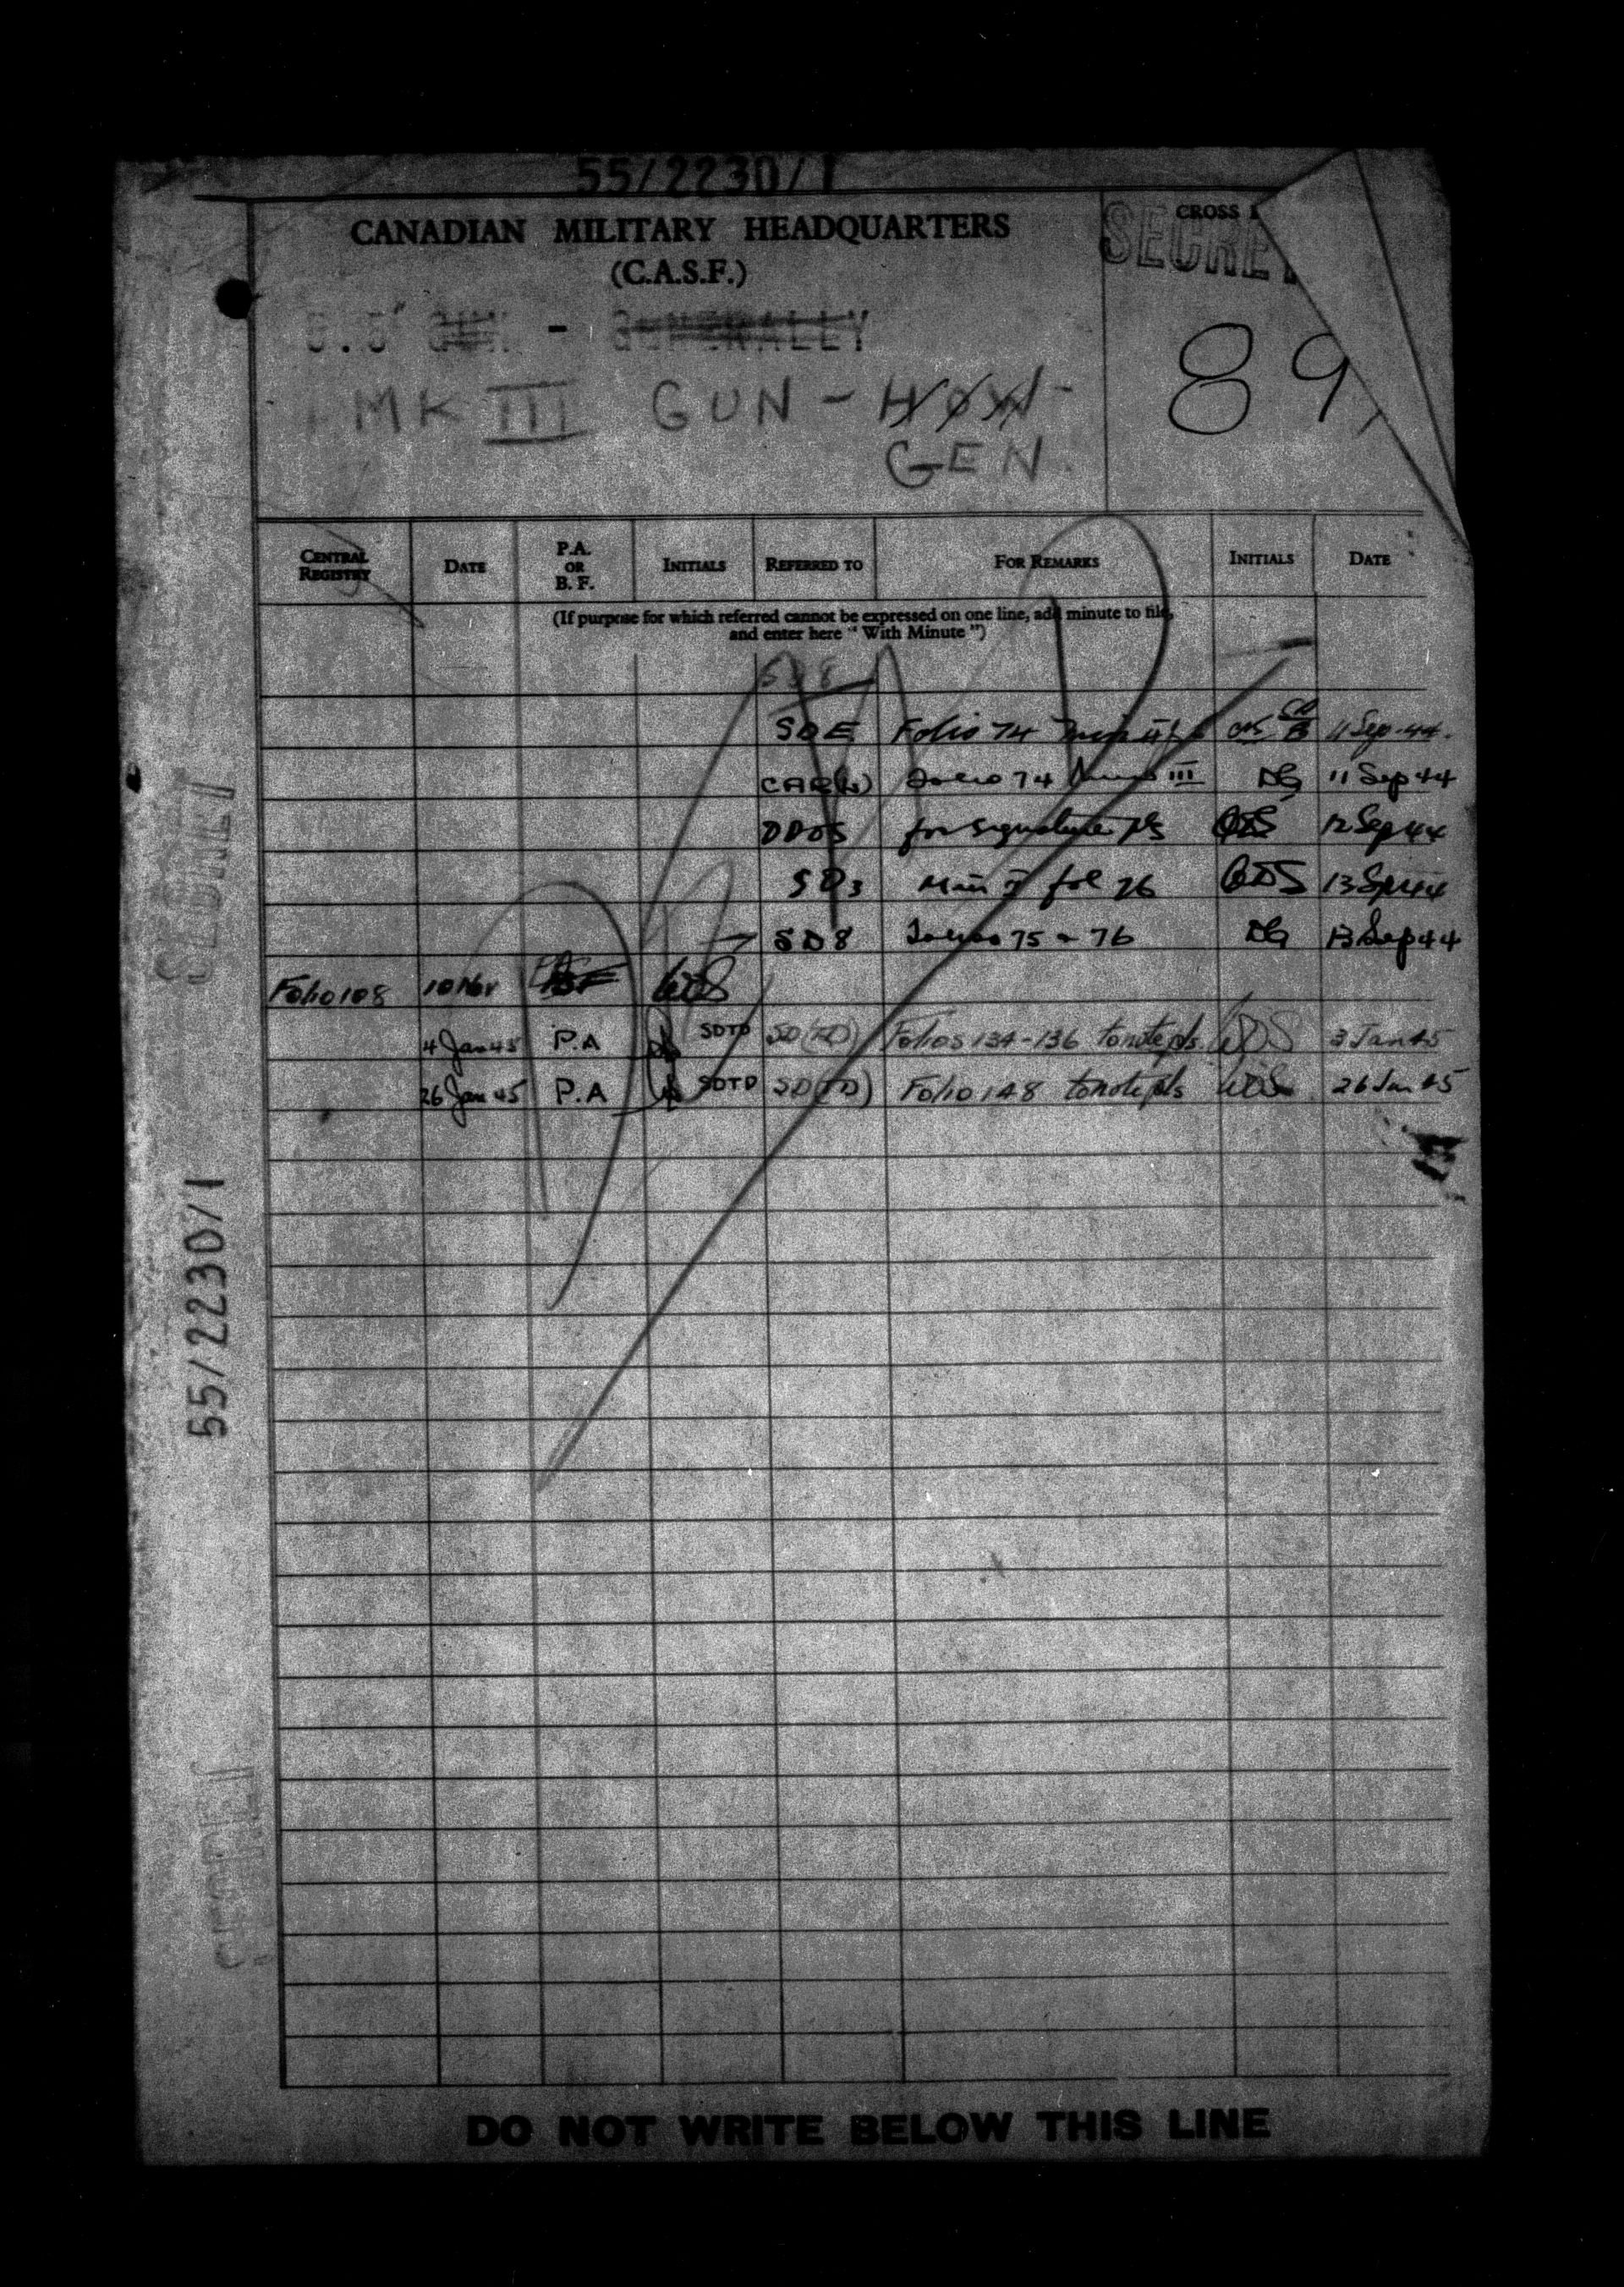 55/2230/1
CANADIAN MILITARY HEADQUARTERS
(C.A.S.F.)
CROSS
SECRET
5.5" GUN - GENERALLY
MK III GUN - HOW-
GEN.
89
CENTRAL REGISTRY DATE P.A. OR B.F. INITIALS REFERRED TO FOR REMARKS INITIALS DATE
(If purpose for which referred cannot be expressed on one line, add minute to file,
and enter here "With Minute")
SD8
SDE Folio 74 11 Sep 44.
CAR(W) Folio 74 Minute III DG 11 Sep 44
DDOS for signature pls 12 Sep 44
SD3 Min I fol 76 13 Sep 44
SD8 Folios 75 - 76 DG 13 Sep 44
Folio 108 10 Nov BF WDS
4 Jan 45 P.A SDTD SD(TD) Folios 134-136 to note pls. WDS 3 Jan 45
26 Jan 45 P.A SDTD SD(TD) Folio 148 to note pls WDS 26 Jan 45
SECRET
55/2230/1
SECRET
DO NOT WRITE BELOW THIS LINE